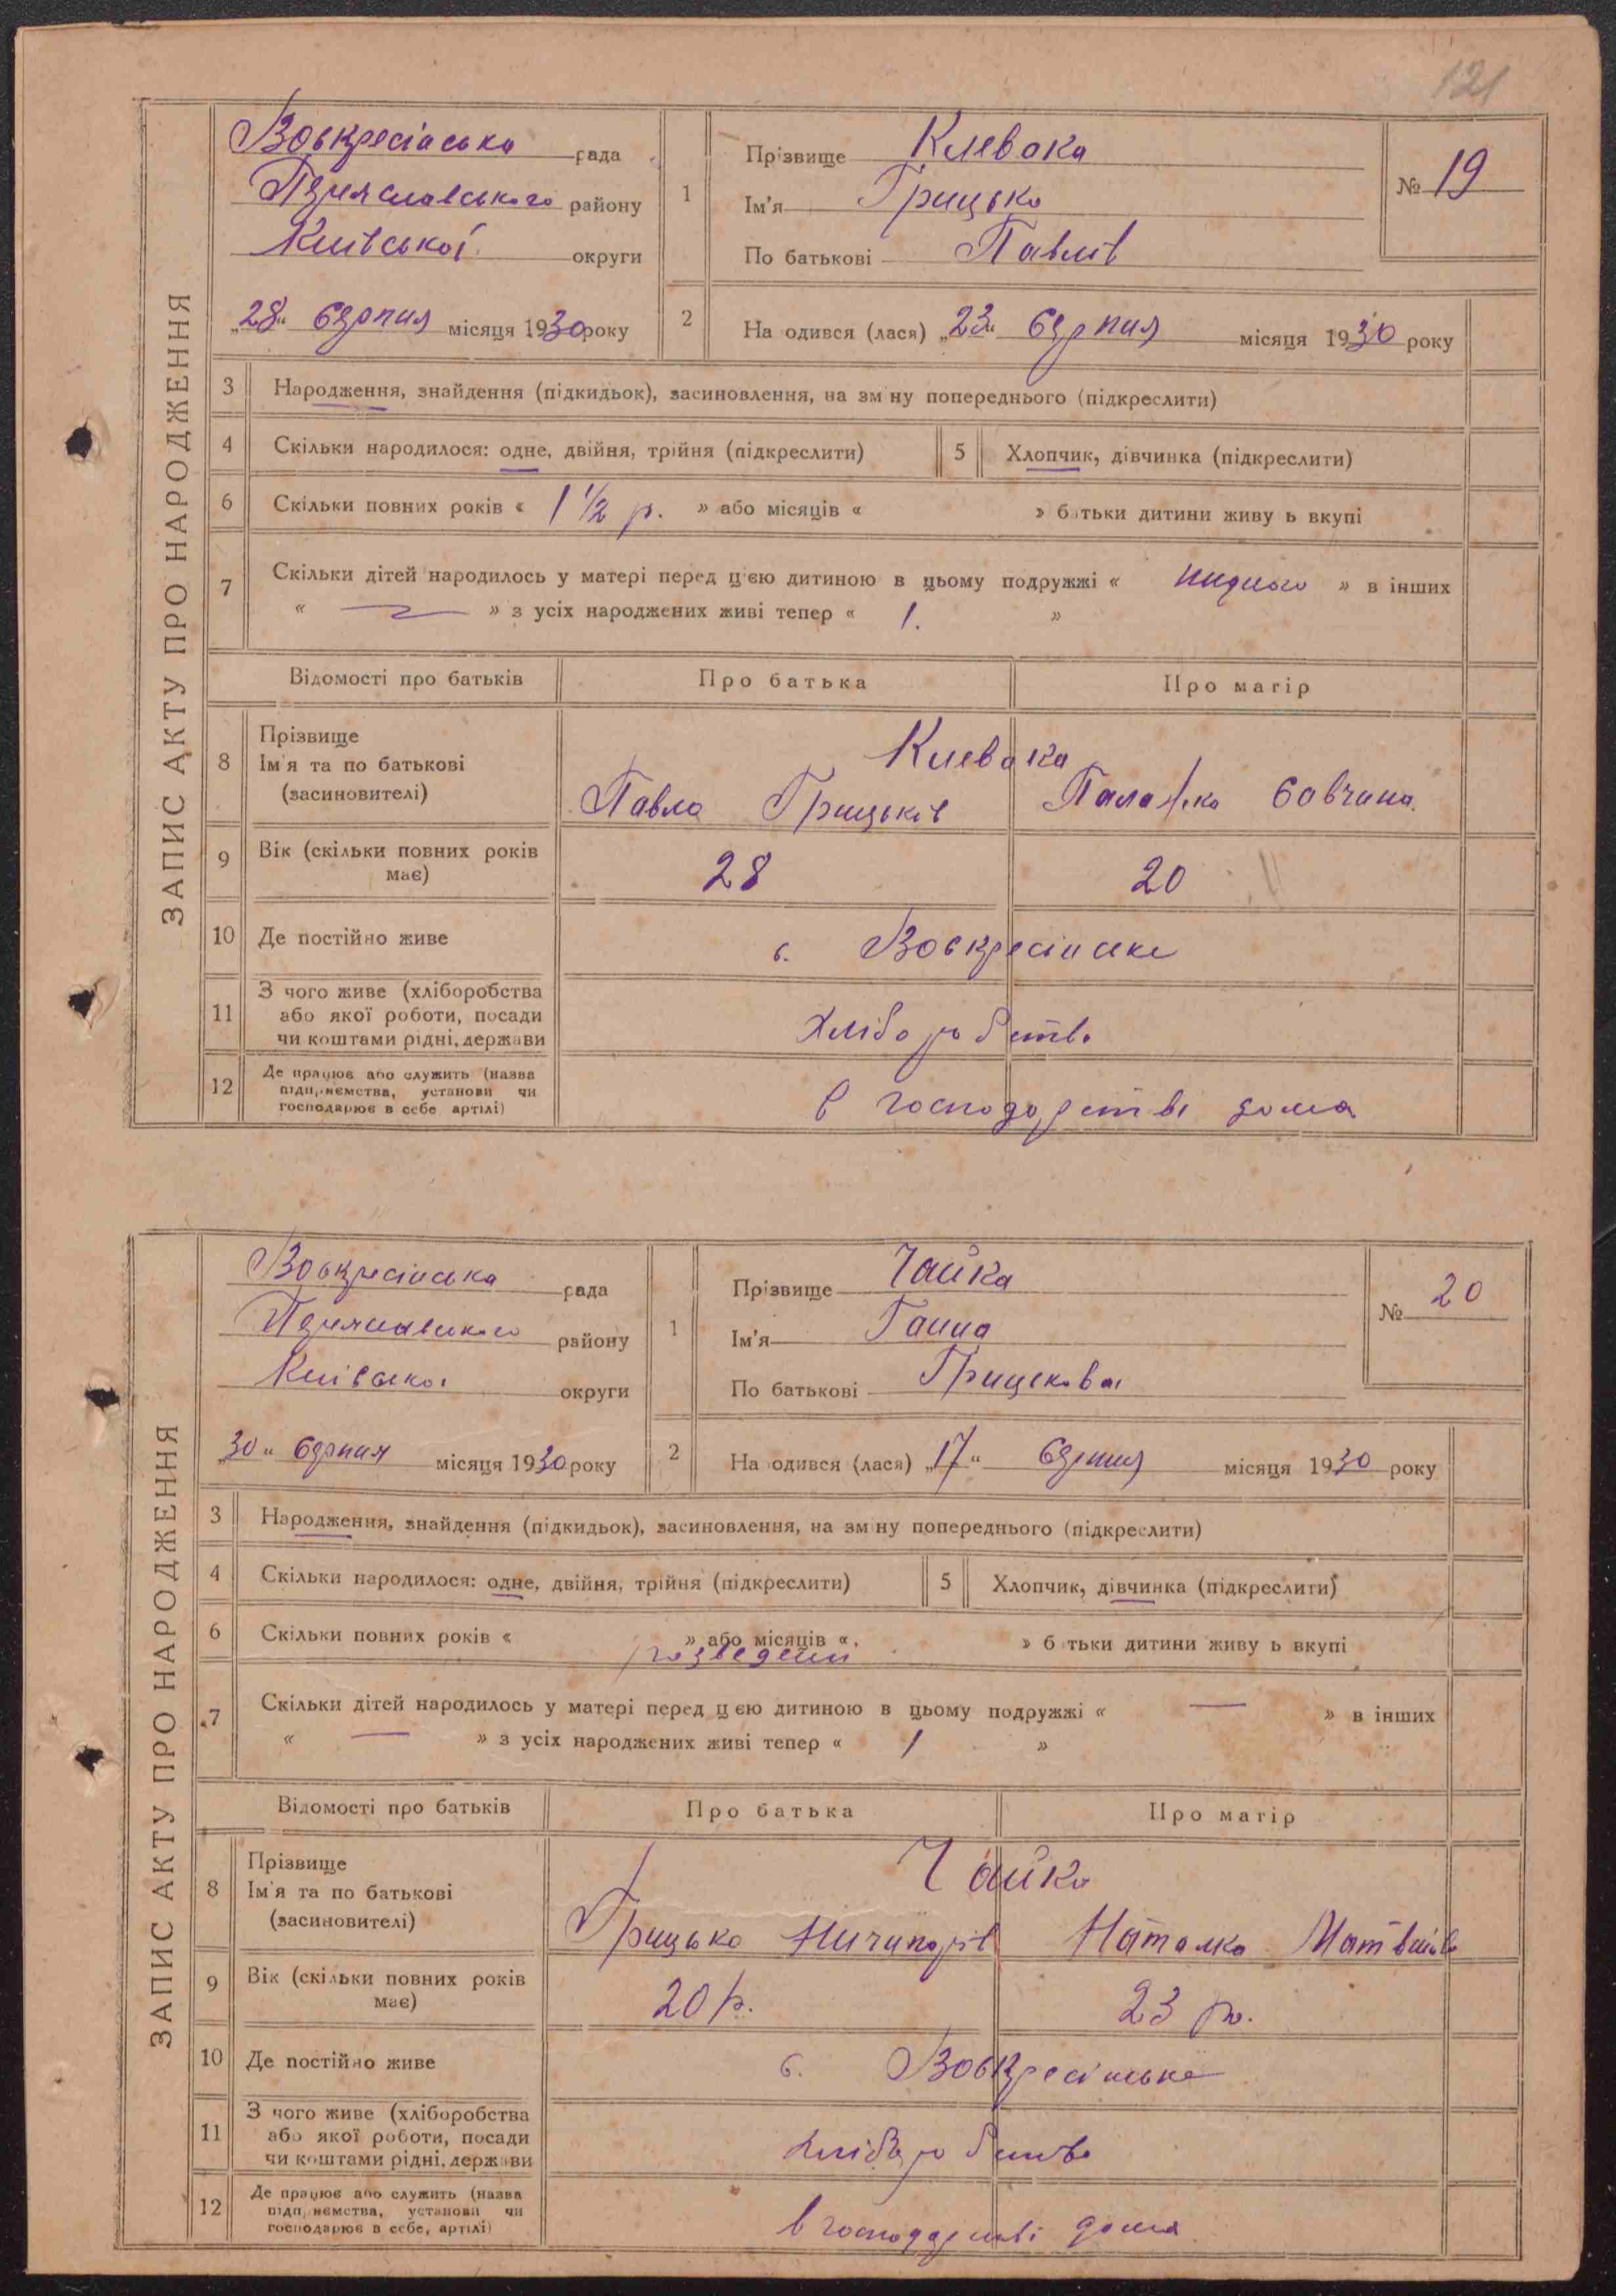 121
ЗАПИС АКТУ ПРО НАРОДЖЕННЯ
Воскресінська рада
Переяславського району
Київської округи
„28“ серпня місяця 1930 року
1
Прізвище Клевака
Ім'я Грицько
По батькові Павлів
№ 19
2
На одився (лася) „23“ серпня місяця 1930 року
3 Народження, знайдення (підкидьок), засиновлення, на зм ну попереднього (підкреслити)
4 Скільки народилося: одне, двійня, трійня (підкреслити) 5 Хлопчик, дівчинка (підкреслити)
6 Скільки повних років « 1 1/2 р. » або місяців « » б тьки дитини живу ь вкупі
7 Скільки дітей народилось у матері перед цією дитиною в цьому подружжі « ниодного » в інших
« — » з усіх народжених живі тепер « 1. »
Відомості про батьків Про батька Про матір
8 Прізвище
Ім'я та по батькові
(засиновителі)
Клевака
Павло Грицьків Палажка Савчина
9 Вік (скільки повних років має) 28 20
10 Де постійно живе с. Воскресінське
11 З чого живе (хліборобства
або якої роботи, посади
чи коштами рідні, держави
хліборобство
12 Де працює або служить (назва
підприємства, установи чи
господарює в себе артілі)
в господарстві дома
ЗАПИС АКТУ ПРО НАРОДЖЕННЯ
Воскресінська рада
Переяславського району
Київської округи
„30“ серпня місяця 1930 року
1
Прізвище Чайка
Ім'я Ганна
По батькові Грицькова
№ 20
2
На одився (лася) „17“ серпня місяця 1930 року
3 Народження, знайдення (підкидьок), засиновлення, на зм ну попереднього (підкреслити)
4 Скільки народилося: одне, двійня, трійня (підкреслити) 5 Хлопчик, дівчинка (підкреслити)
6 Скільки повних років « » або місяців « » б тьки дитини живу ь вкупі
розведені
7 Скільки дітей народилось у матері перед цією дитиною в цьому подружжі « — » в інших
« — » з усіх народжених живі тепер « 1 »
Відомості про батьків Про батька Про матір
8 Прізвище
Ім'я та по батькові
(засиновителі)
Чайка
Грицько Ничипорів Наталка Матвіїв
9 Вік (скільки повних років має) 20 р. 23 р.
10 Де постійно живе с. Воскресінське
11 З чого живе (хліборобства
або якої роботи, посади
чи коштами рідні, держави
хліборобство
12 Де працює або служить (назва
підприємства, установи чи
господарює в себе, артілі)
в господарстві дома